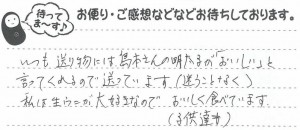 待ってま〜す♪
お便り・ご感想などなどお待ちしております。
いつも送り物には島本さんの明太子が「おいしい」と
言ってくれるので送っています(迷うことなく)
私は生ウニが大好きなので おいしく食べています。
(子供達も)